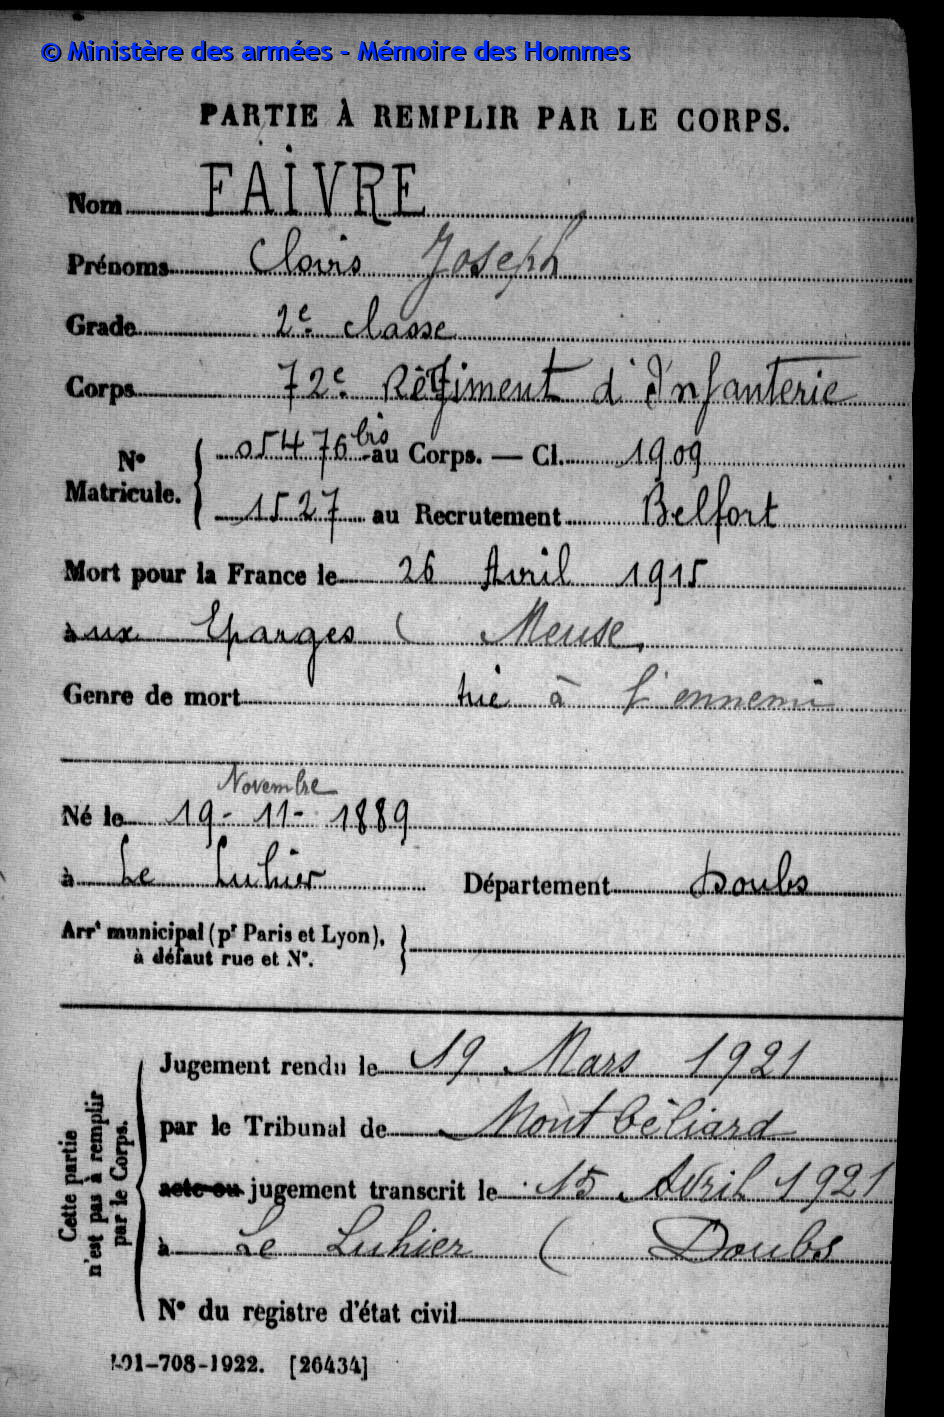 © Ministère des armées - Mémoire des Hommes
PARTIE À REMPLIR PAR LE CORPS.
Nom FAIVRE
Prénoms Clovis Joseph
Grade 2e classe
Corps 72e Régiment d'Infanterie
N° Matricule. { 05476 bis au Corps. — Cl. 1909
1527 au Recrutement Belfort
Mort pour la France le 26 Avril 1915
aux Eparges ( Meuse
Genre de mort tué à l'ennemi
Novembre
Né le 19 - 11 - 1889
à Le Luhier Département Doubs
Arrt municipal (pr Paris et Lyon), à défaut rue et N°. }
Cette partie n'est pas à remplir par le Corps.
Jugement rendu le 19 Mars 1921
par le Tribunal de Montbéliard
acte ou jugement transcrit le 15 Avril 1921
à Le Luhier ( Doubs
N° du registre d'état civil
101-708-1922. [26434]